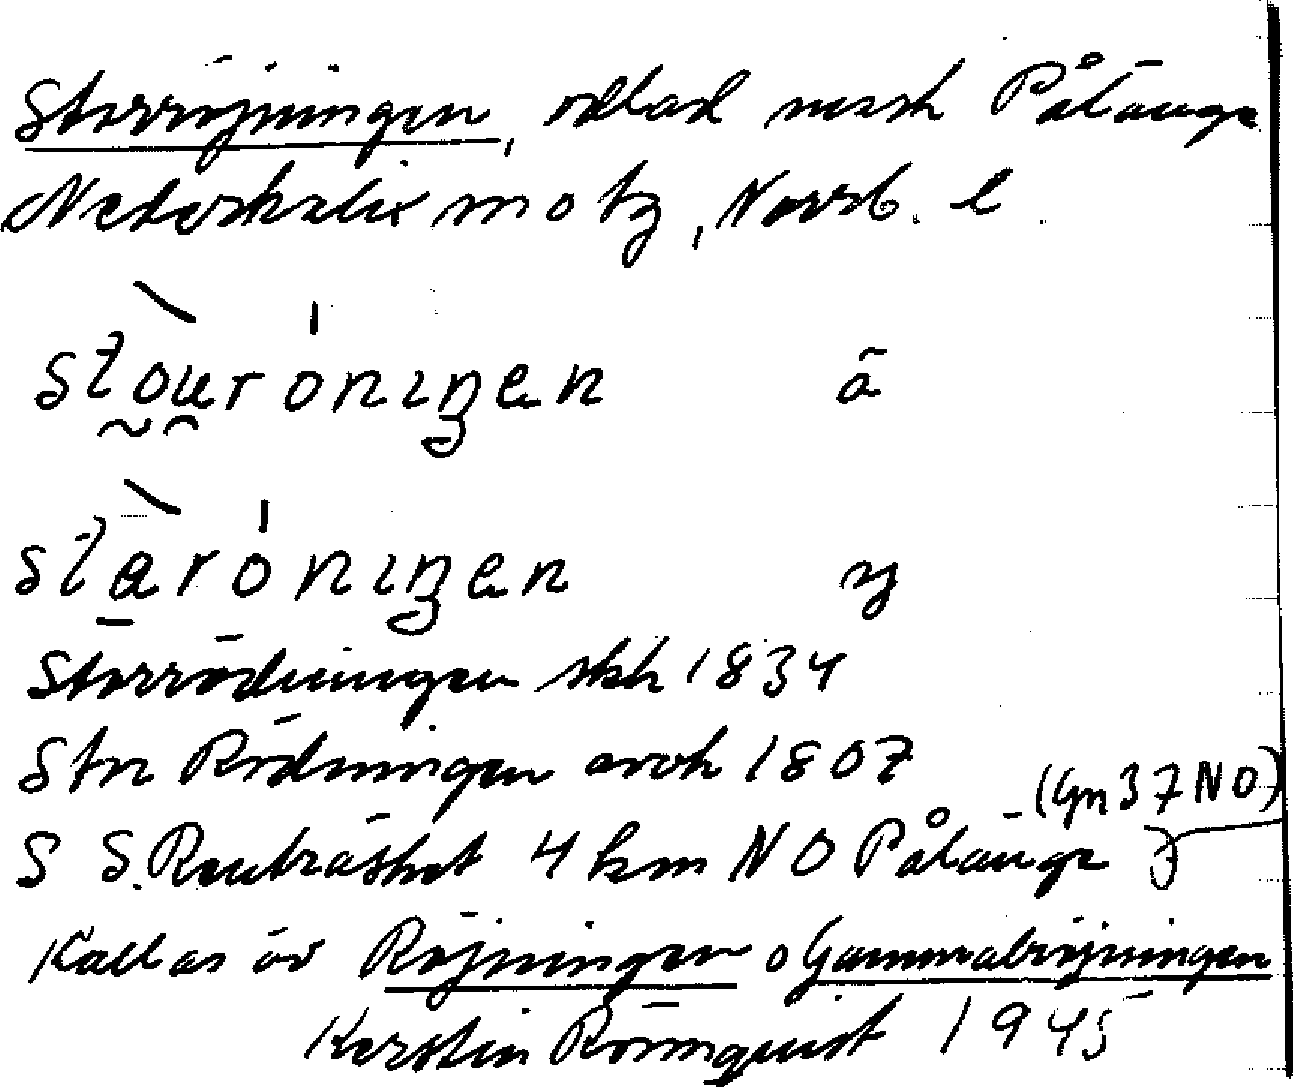 Storröjningen, odlad mark Pålänge
Nederkalix m o tg, Norrb. l.
stouröningen ä
staröningen y
Storrödningen skh 1834
Str Rödningen avvh 1807
S S. Renträsket 4 km NO Pålänge (Gn 37 NO)
Kallas äv Röjningen o Gammalröjningen
Kerstin Rönnquist 1945